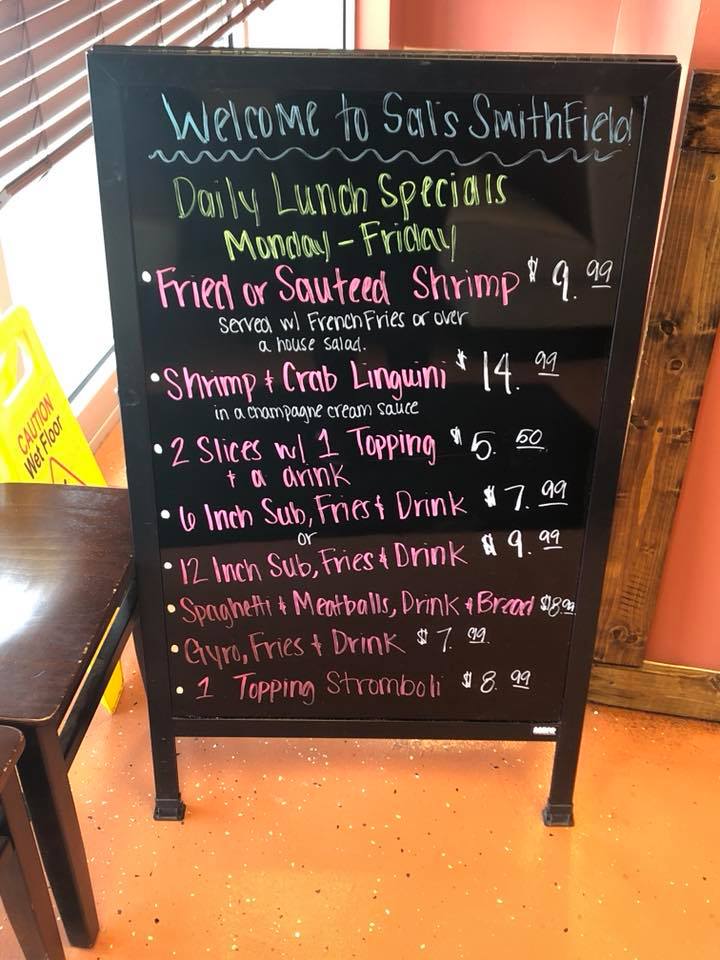 Welcome to Sal's Smithfield
Daily Lunch Specials
Monday - Friday
• Fried or Sauteed Shrimp $9.99
served w/ French Fries or over
a house salad.
• Shrimp & Crab Linguini $14.99
in a champagne cream sauce
• 2 Slices w/ 1 Topping $5.50
& a drink
• 6 Inch Sub, Fries & Drink $7.99
or
• 12 Inch Sub, Fries & Drink $9.99
• Spaghetti & Meatballs, Drink & Bread $8.99
• Gyro, Fries & Drink $7.99
• 1 Topping Stromboli $8.99
CAUTION
Wet Floor